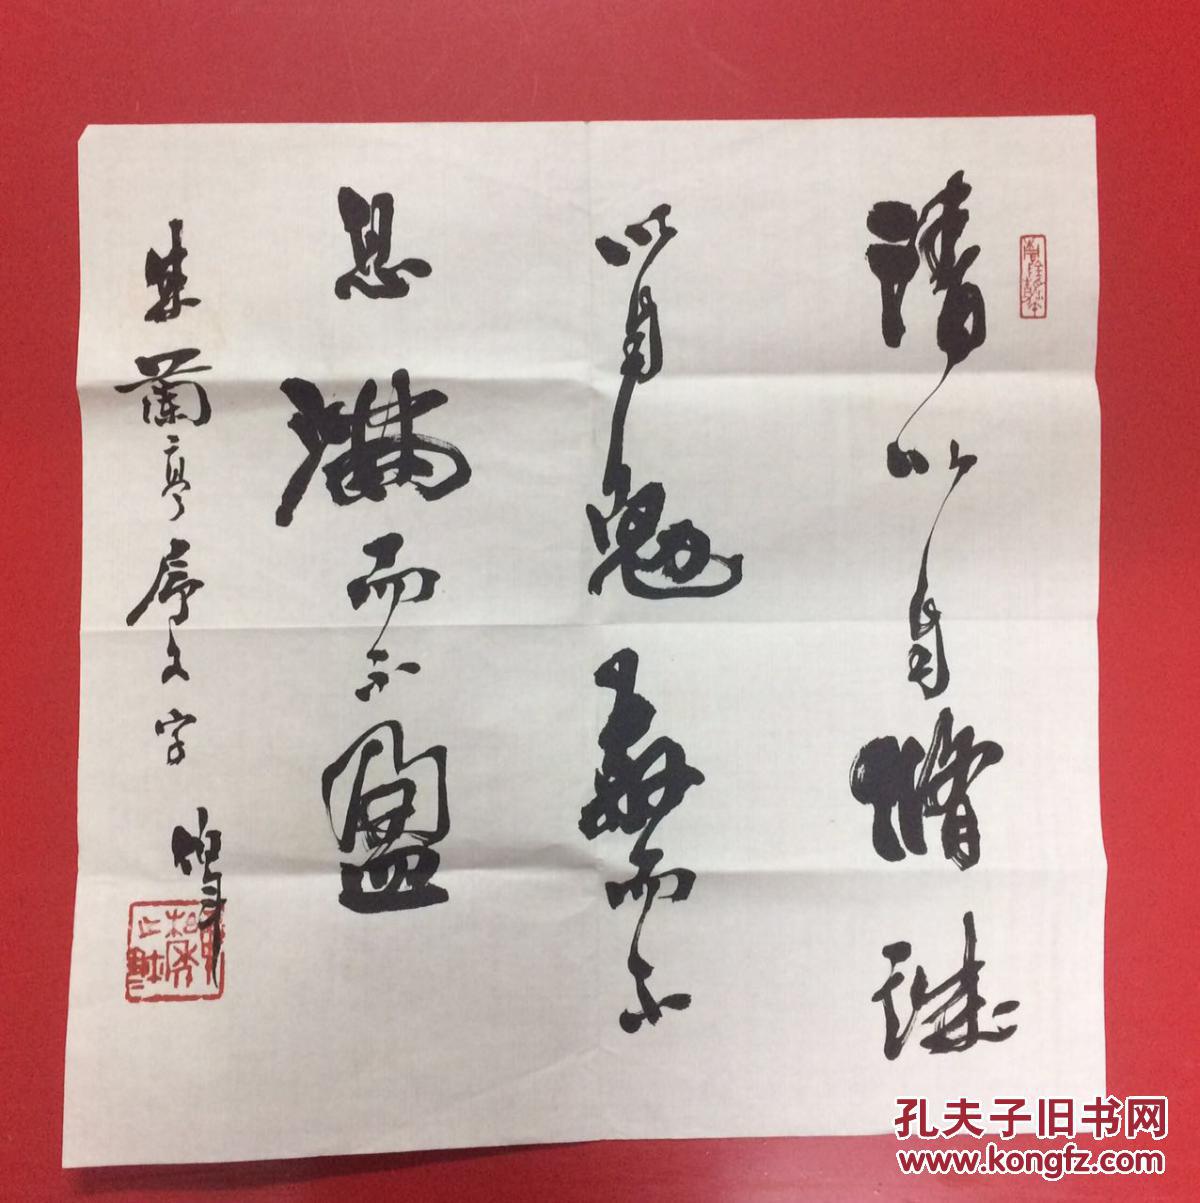 清以自脩誠
以自勉敬而不
怠滿而不盈
集蘭亭序文字
孔夫子旧书网
www.kongfz.com